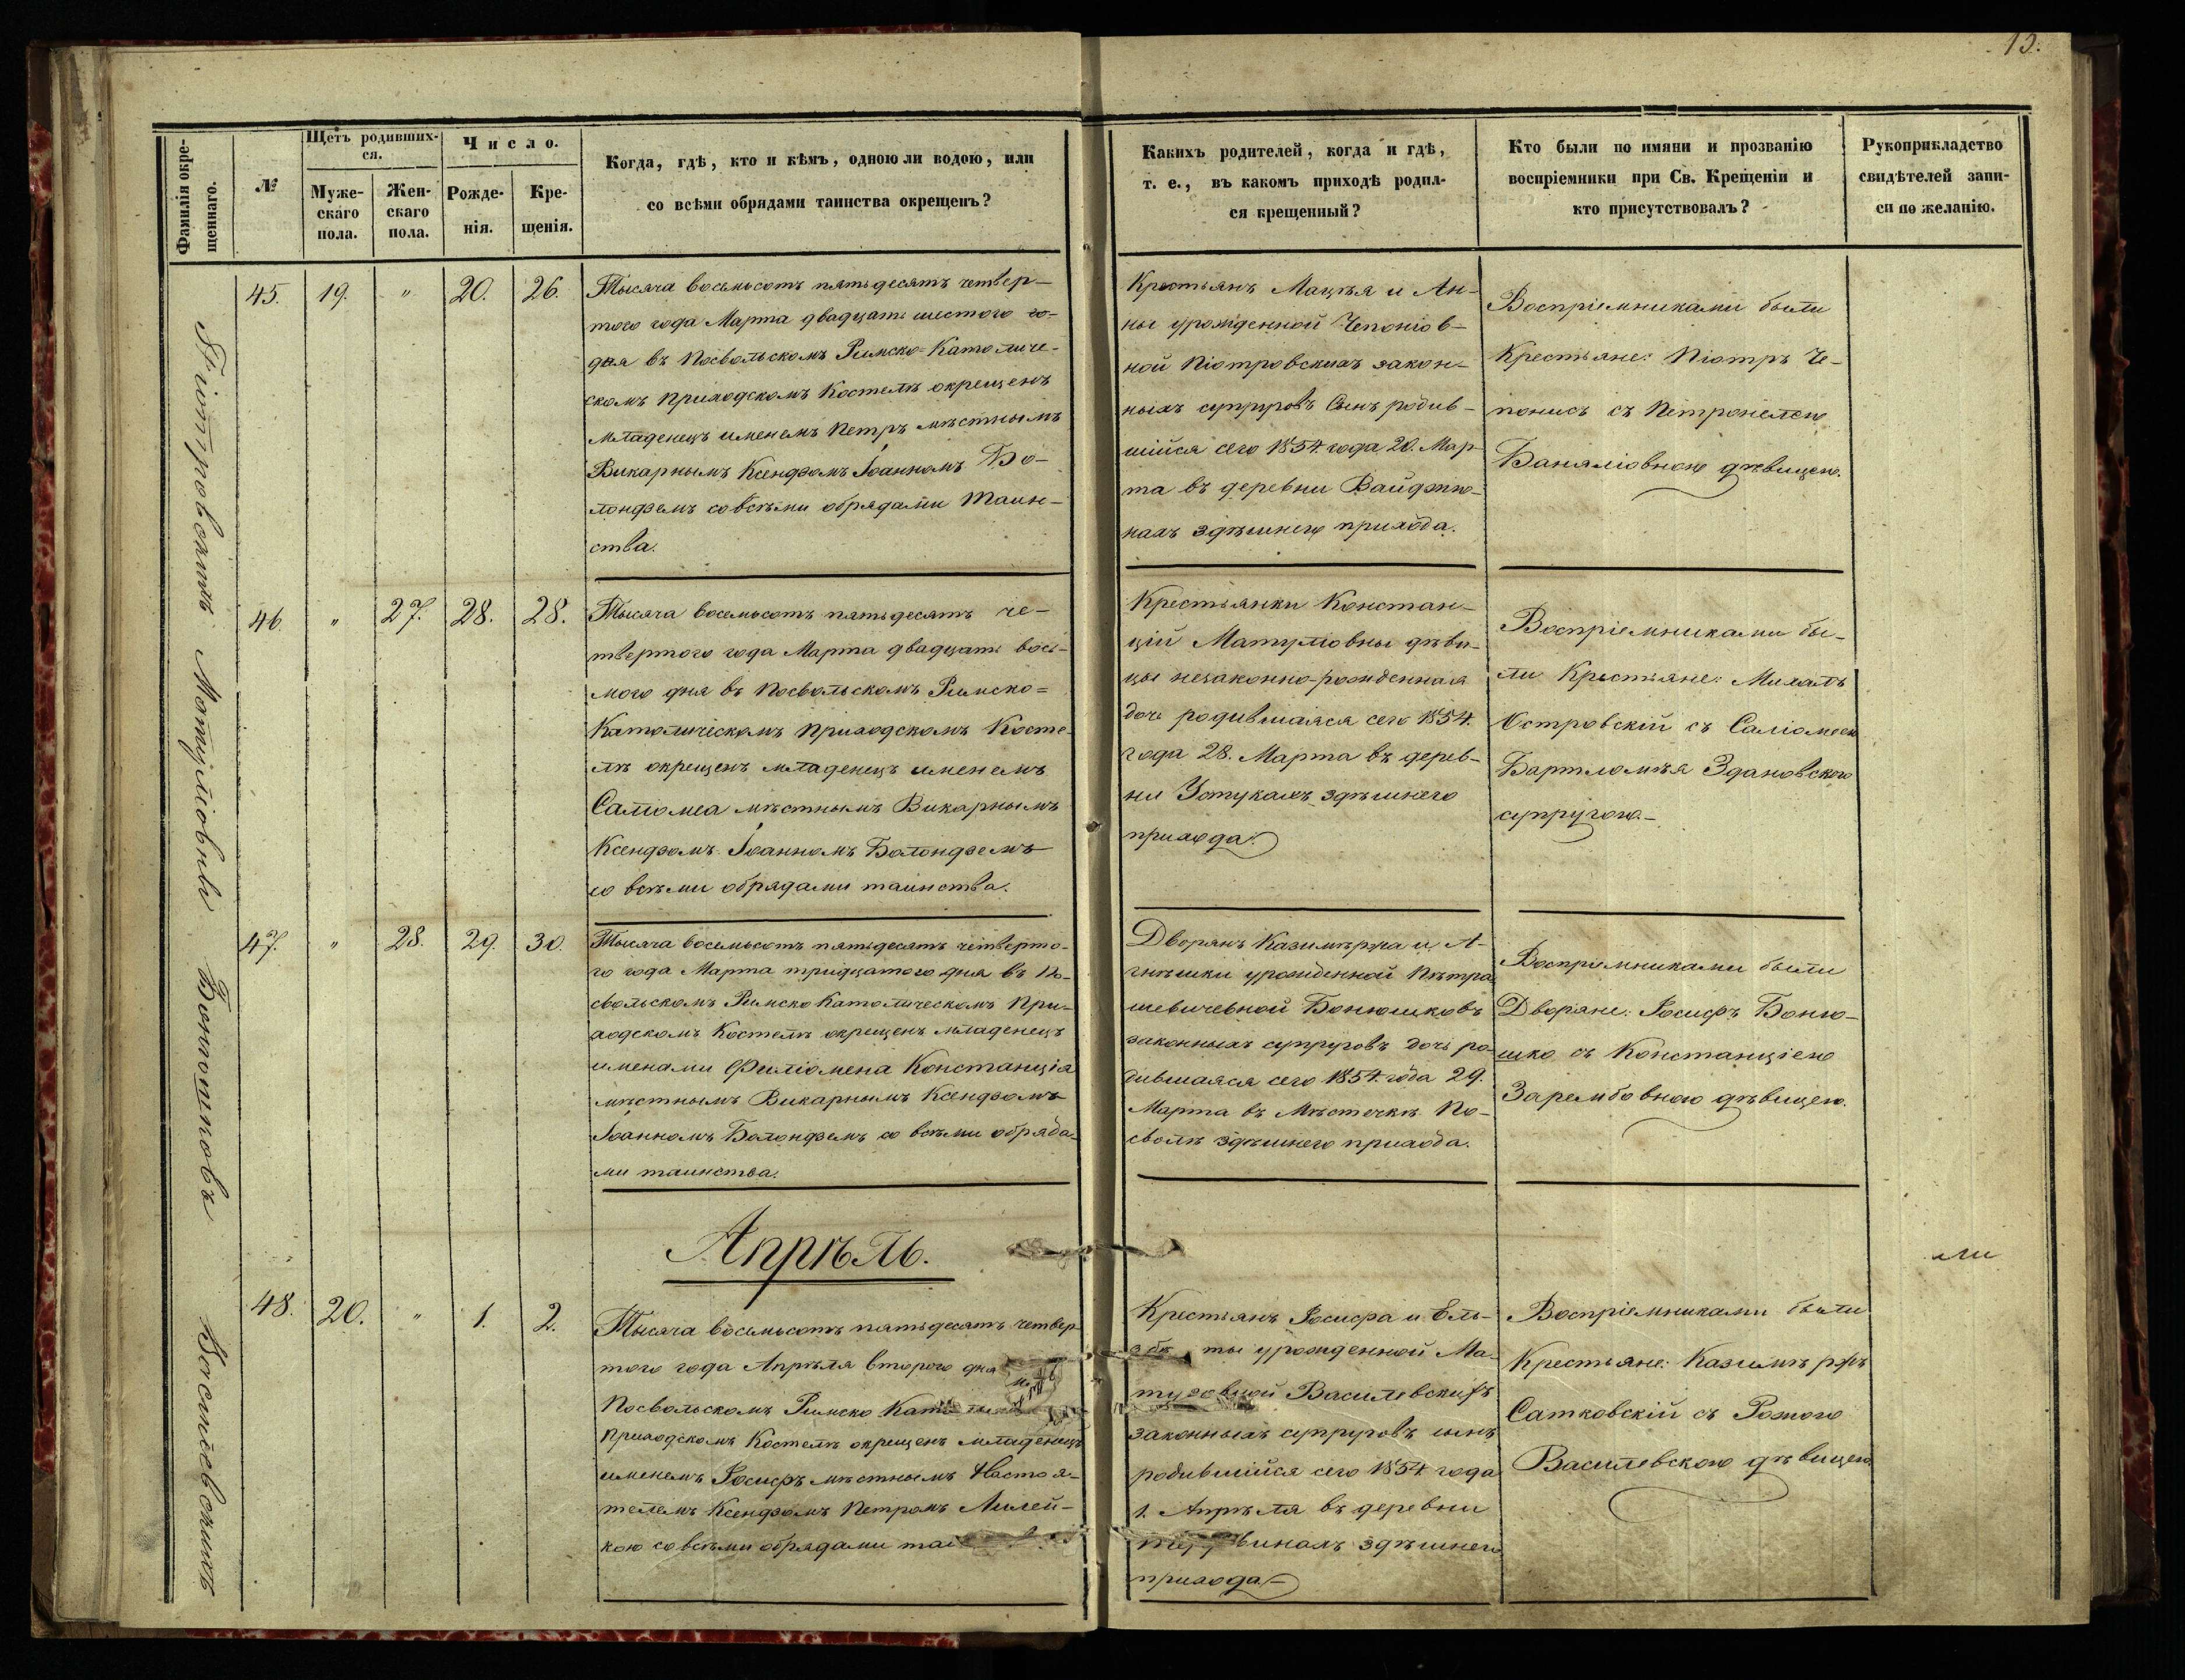 13.
Фамилія окре-
щеннаго.
№
Щетъ родивших-
ся.
Муже-
скаго
пола.
Жен-
скаго
пола.
Число.
Рожде-
нія.
Кре-
щенія.
Когда, гдѣ, кто и кѣмъ, одною ли водою, или
со всѣми обрядами таинства окрещенъ?
Какихъ родителей, когда и гдѣ,
т. е., въ какомъ приходѣ родил-
ся крещенный?
Кто были по имяни и прозванію
воспріемники при Св. Крещеніи и
кто присутствовалъ?
Рукоприкладство
свидѣтелей запи-
си по желанію.
45.
19.
"
20.
26.
Тысяча восемьсотъ пятьдесятъ четвер-
того года Марта двадцать шестого го-
дня въ Посвольскомъ Римско-Католиче-
скомъ приходскомъ Костелѣ окрещенъ
младенецъ именемъ Петръ мѣстнымъ
Викарнымъ Ксендзомъ Іоанномъ Бо-
лондземъ со всѣми обрядами Таин-
ства.
Крестьянъ Мацѣя и Ан-
ны урожденной Чепонiов-
ной Піотровскихъ закон-
ныхъ супруговъ Сынъ родив-
шійся сего 1854. года 20. Мар-
та въ деревни Вайдзю-
нахъ здѣшнего прихода.
Воспріемниками были
Крестьяне: Піотръ Че-
понисъ съ Петронелею
Баналіовною дѣвицею.
46.
"
27.
28.
28.
Тысяча восемьсотъ пятьдесятъ че-
твертого года Марта двадцать вось-
мого дня въ Посвольскомъ Римско=
Католическомъ Приходскомъ Косте-
лѣ окрещенъ младенецъ именемъ
Саліомеа мѣстнымъ Викарнымъ
Ксендзомъ Іоанномъ Болондземъ
со всѣми обрядами таинства.
Крестьянки Констан-
ціи Матуліовны дѣви-
цы незаконно-рожденная
дочь родившаяся сего 1854.
года 28. Марта въ дерев-
ни Устукахъ здѣшнего
прихода.
Воспріемниками бы-
ли Крестьяне: Михалъ
Островскій съ Саліомеею
Бартломѣя Здановского
супругою.
47.
"
28.
29.
30.
Тысяча восемьсотъ пятьдесятъ четверто-
го года Марта тридцатого дня въ По-
свольскомъ Римско Католическомъ При-
ходскомъ Костелѣ окрещенъ младенецъ
именами Филіомена Констанція
мѣстнымъ Викарнымъ Ксендзомъ
Іоанномъ Болондземъ со всѣми обряда-
ми таинства.
Дворянъ Казимѣржа и А-
гнѣшки урожденной Пѣтра-
шевичевной Бонюшковъ
законныхъ супруговъ дочь ро-
дившаяся сего 1854. года 29.
Марта въ Мѣстечкѣ По-
сволѣ здѣшнего прихода.
Воспріемниками были
Дворяне: Іосифъ Боню-
шко съ Констанціею
Зарембовною дѣвицею.
Апрѣль.
48.
20.
"
1.
2.
Тысяча восемьсотъ пятьдесятъ четвер-
того года Апрѣля второго дня
Посвольскомъ Римско
Приходскомъ Костелѣ окрещенъ младенецъ
именемъ Іосифъ мѣстнымъ Настоя-
телемъ Ксендзомъ Петромъ Лилей-
кою со всѣми обрядами
Крестьянъ Іосифа и Ель-
ты урожденной Ма-
Василевскихъ
законныхъ супруговъ сынъ
родившійся сего 1854 года
1. Апрѣля въ деревни
винахъ здѣшнего
прихода
Воспріемниками были
Крестьяне: Казимѣржъ
Сатковскій съ Розою
Василевскою дѣвицею
ли
Піотровскихъ
Матуліовны
Бонюшковъ
Василевскихъ